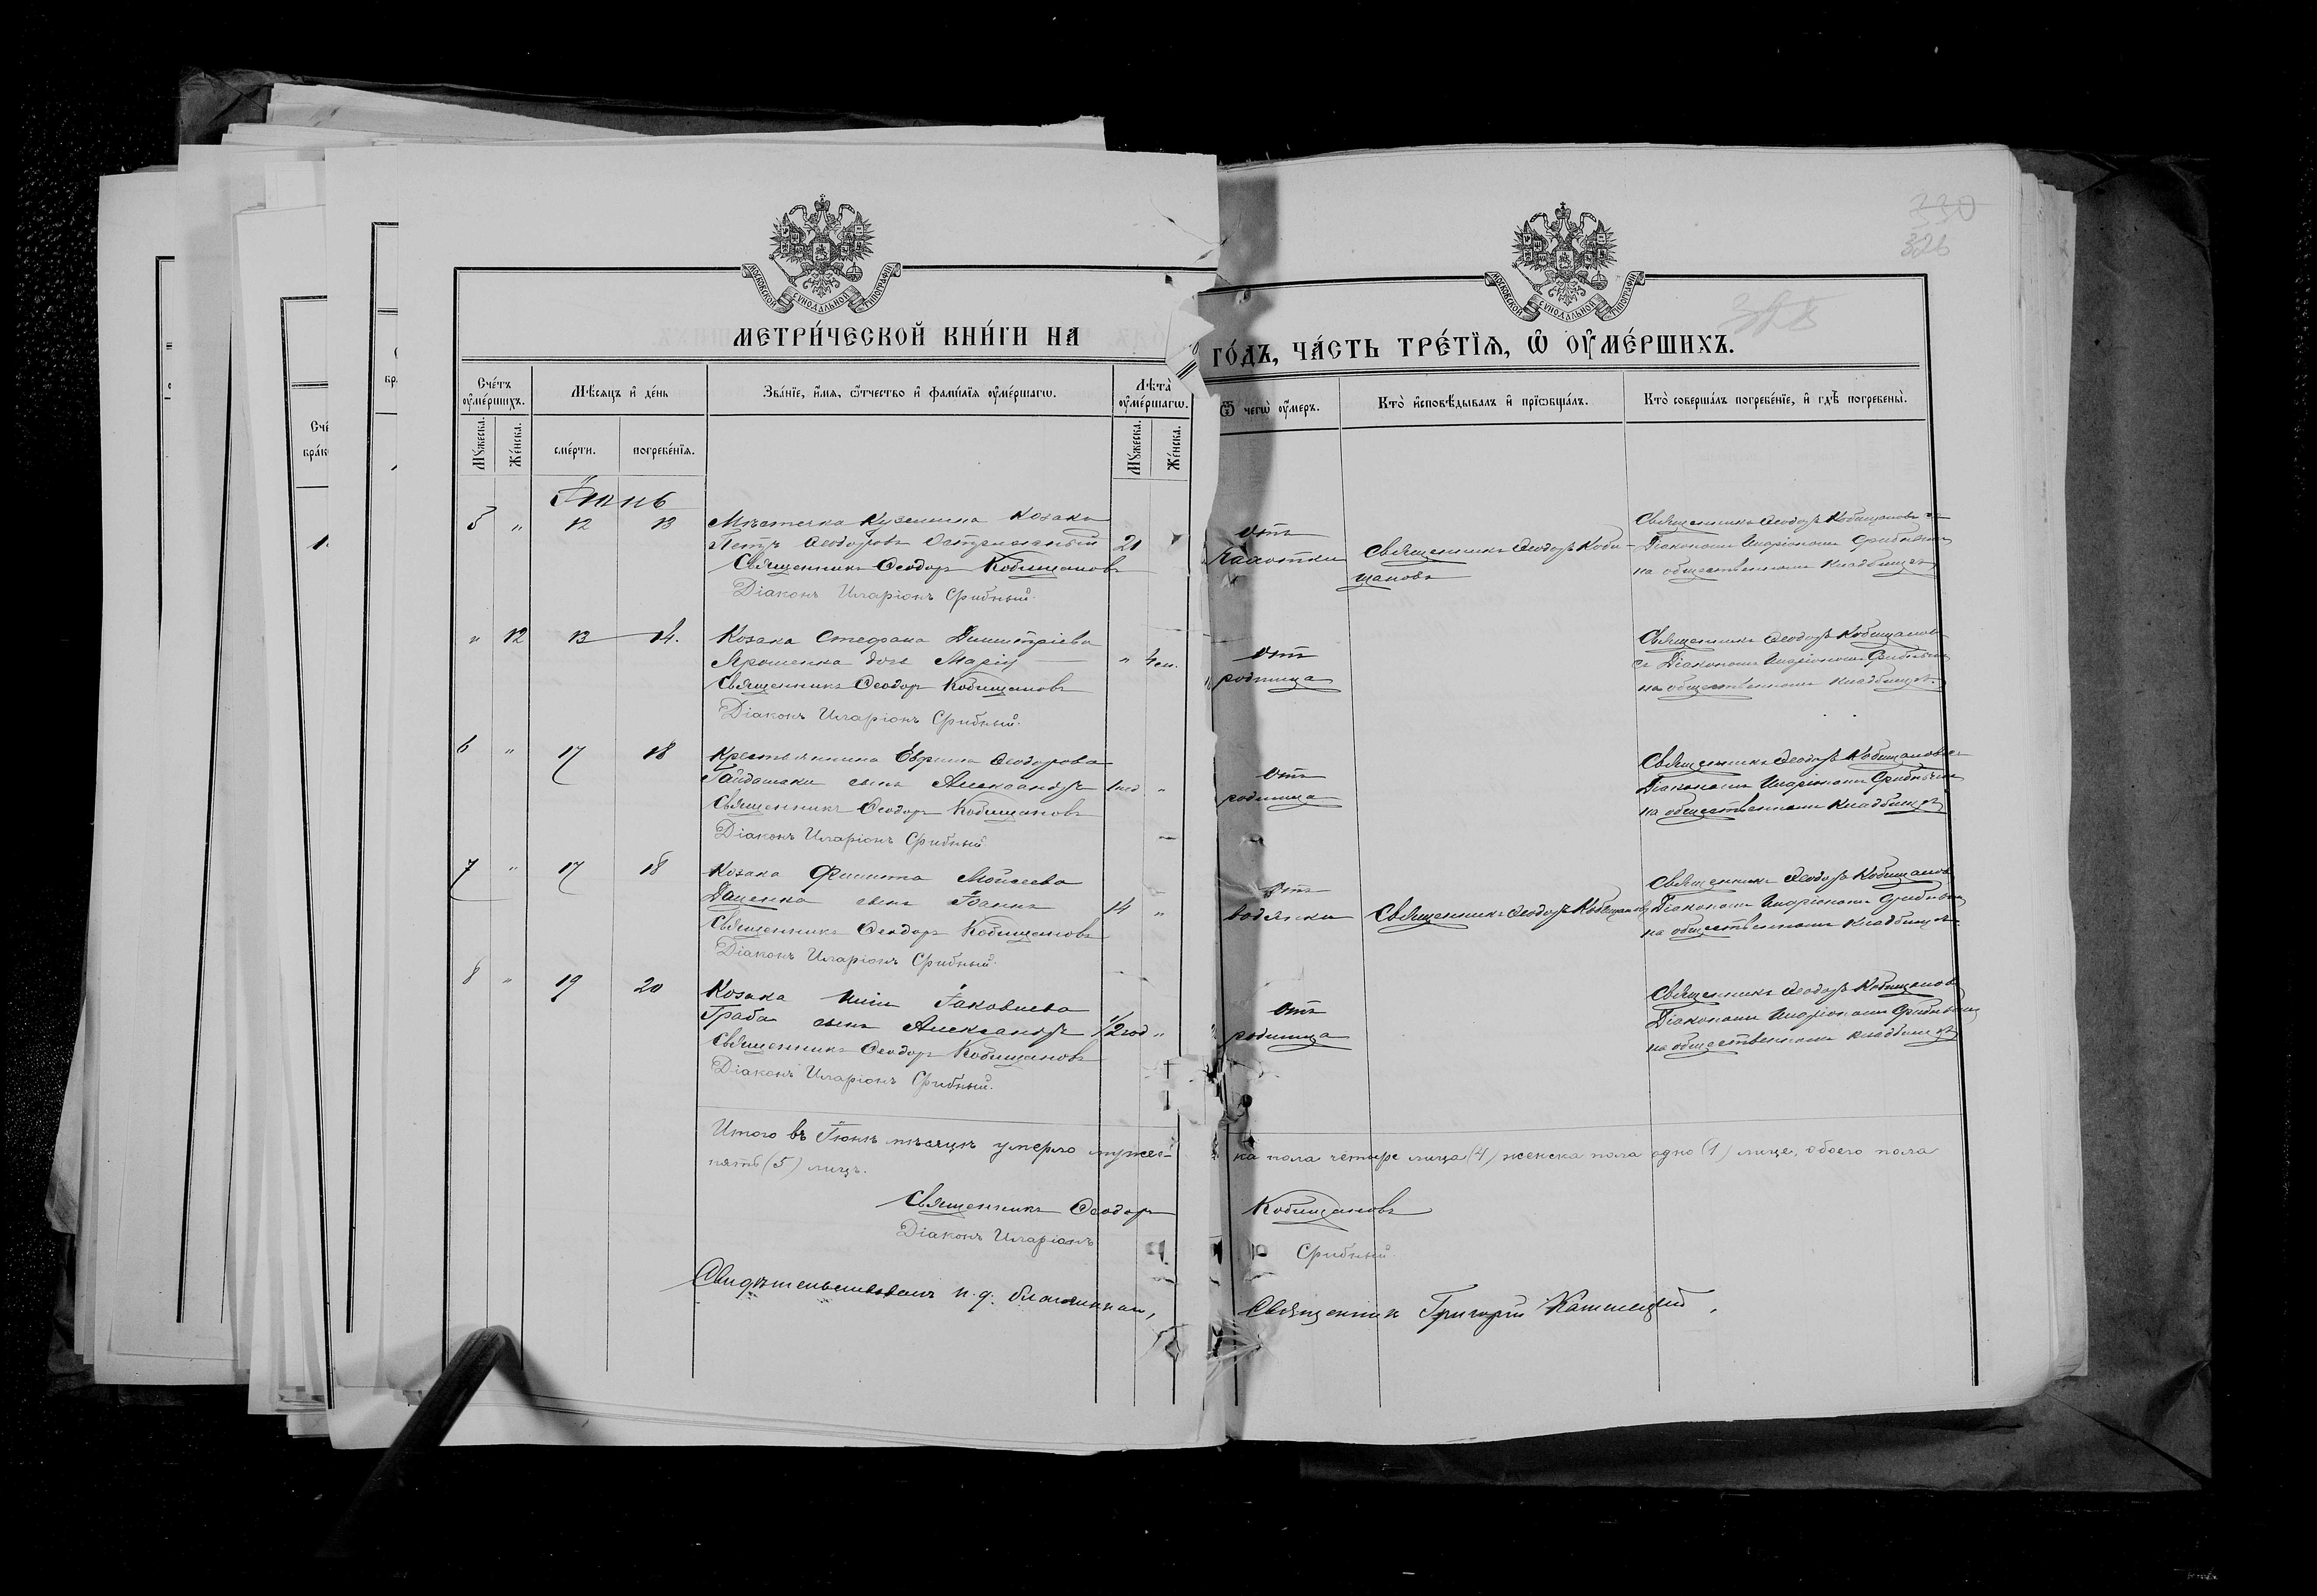 330
326
МОСКОВСКОЙ СѴНОДАЛЬНОЙ ТИПОГРАФІИ
МОСКОВСКОЙ СѴНОДАЛЬНОЙ ТИПОГРАФІИ
МЕТРИ́ЧЕСКОЙ КНИ́ГИ НА
ГО́ДЪ, ЧА́СТЬ ТРЕ́ТІѦ, Ѡ ОУМЕ́РШИХЪ.
Сче́тъ оуме́ршихъ.
Мѣ́сяцъ и де́нь
Зва́нїе, и́мя, ѻ́тчество и фами́лїя оуме́ршагѡ.
Лѣта̀ оуме́ршагѡ.
Ѿ чегѡ̀ оу́меръ.
Кто̀ и҆сповѣ́дывалъ и҆ прїѡбща́лъ.
Кто̀ соверша́лъ погребе́нїе, и҆ гдѣ̀ погребены̀.
Мꙋжеска.
Же́нска.
сме́рти.
погребе́нїя.
Мꙋжеска.
Же́нска.
Іюнь
5 " 12 13 Мѣстечка Куземина козакъ
Петръ Ѳеодоровъ 21
Священникъ Ѳеодоръ Кобищановъ
Діаконъ Иларіонъ Срибный.
отъ
чахотки
Священникъ Ѳеодоръ Коби-
щановъ
Священникъ Ѳеодоръ Кобищановъ съ
Діакономъ Иларіономъ Срибнымъ
на общественномъ кладбищѣ
" 12 13 14. Козака Стефана Димитріева
Ярошенка дочь Марія " 4 м.
Священникъ Ѳеодоръ Кобищановъ
Діаконъ Иларіонъ Срибный.
отъ
родимца
Священникъ Ѳеодоръ Кобищановъ
съ Діакономъ Иларіономъ Срибнымъ
на общественномъ кладбищѣ.
6 " 17 18 Крестьянина Евфима Ѳеодорова
Гайдашки сынъ Александръ 1 "
Священникъ Ѳеодоръ Кобищановъ
Діаконъ Иларіонъ Срибный
отъ
родимца
Священникъ Ѳеодоръ Кобищановъ съ
Діакономъ Иларіономъ Срибнымъ
на общественномъ кладбищѣ
7 " 17 18 Козака Филиппа Мойсеева
Даценка сынъ Іоаннъ 14 "
Священникъ Ѳеодоръ Кобищановъ
Діаконъ Иларіонъ Срибный.
отъ
водянки
Священникъ Ѳеодоръ Кобищановъ
Священникъ Ѳеодоръ Кобищановъ
Діакономъ Иларіономъ Срибнымъ
на общественномъ кладбищѣ.
8 " 19 20 Козака Іаковлева
Граба сынъ Александръ 1/2 год "
Священникъ Ѳеодоръ Кобищановъ
Діаконъ Иларіонъ Срибный.
отъ
родимца
Священникъ Ѳеодоръ Кобищановъ
Діакономъ Иларіономъ Срибнымъ
на общественномъ кладбищѣ
Итого въ Іюнѣ мѣсяцѣ умерло мужес-
ка пола четыре лица (4) женска пола одно (1) лице, обоего пола
пять (5) лицъ.
Священникъ Ѳеодоръ Кобищановъ
Діаконъ Иларіонъ Срибный
Свидѣтельствовалъ и. д. благочиннаго,
Священник Григорій